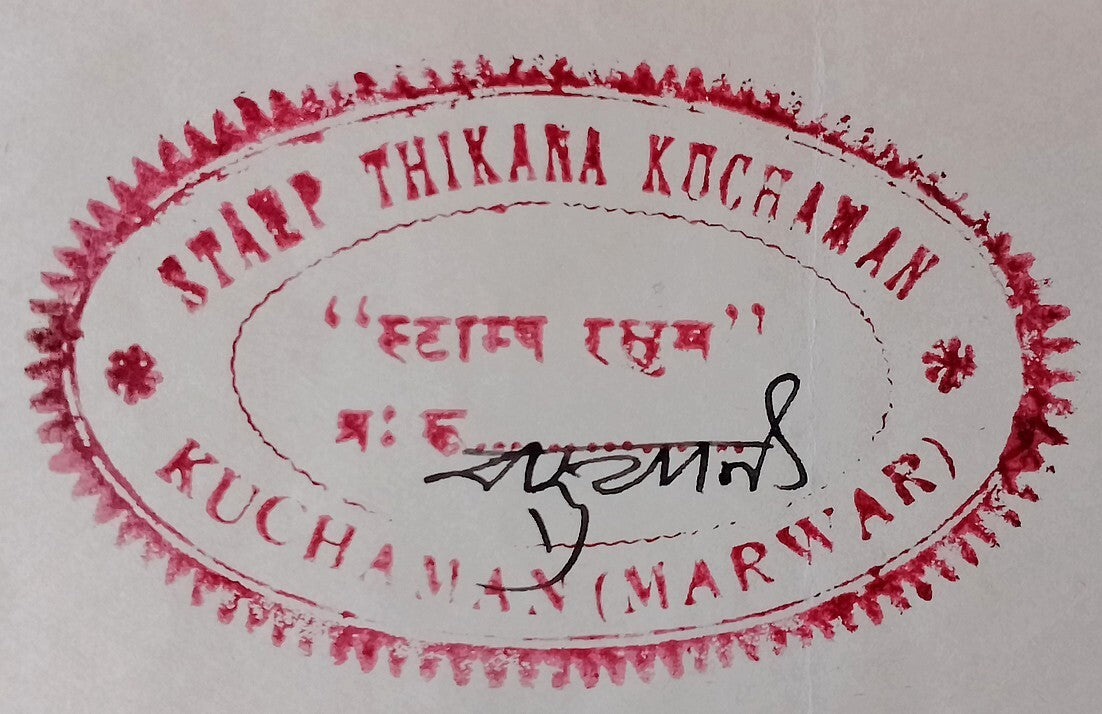 STAMP THIKANA KUCHAMAN
“स्टाम्प रसुम”
प्र: रू..........................
KUCHAMAN (MARWAR)